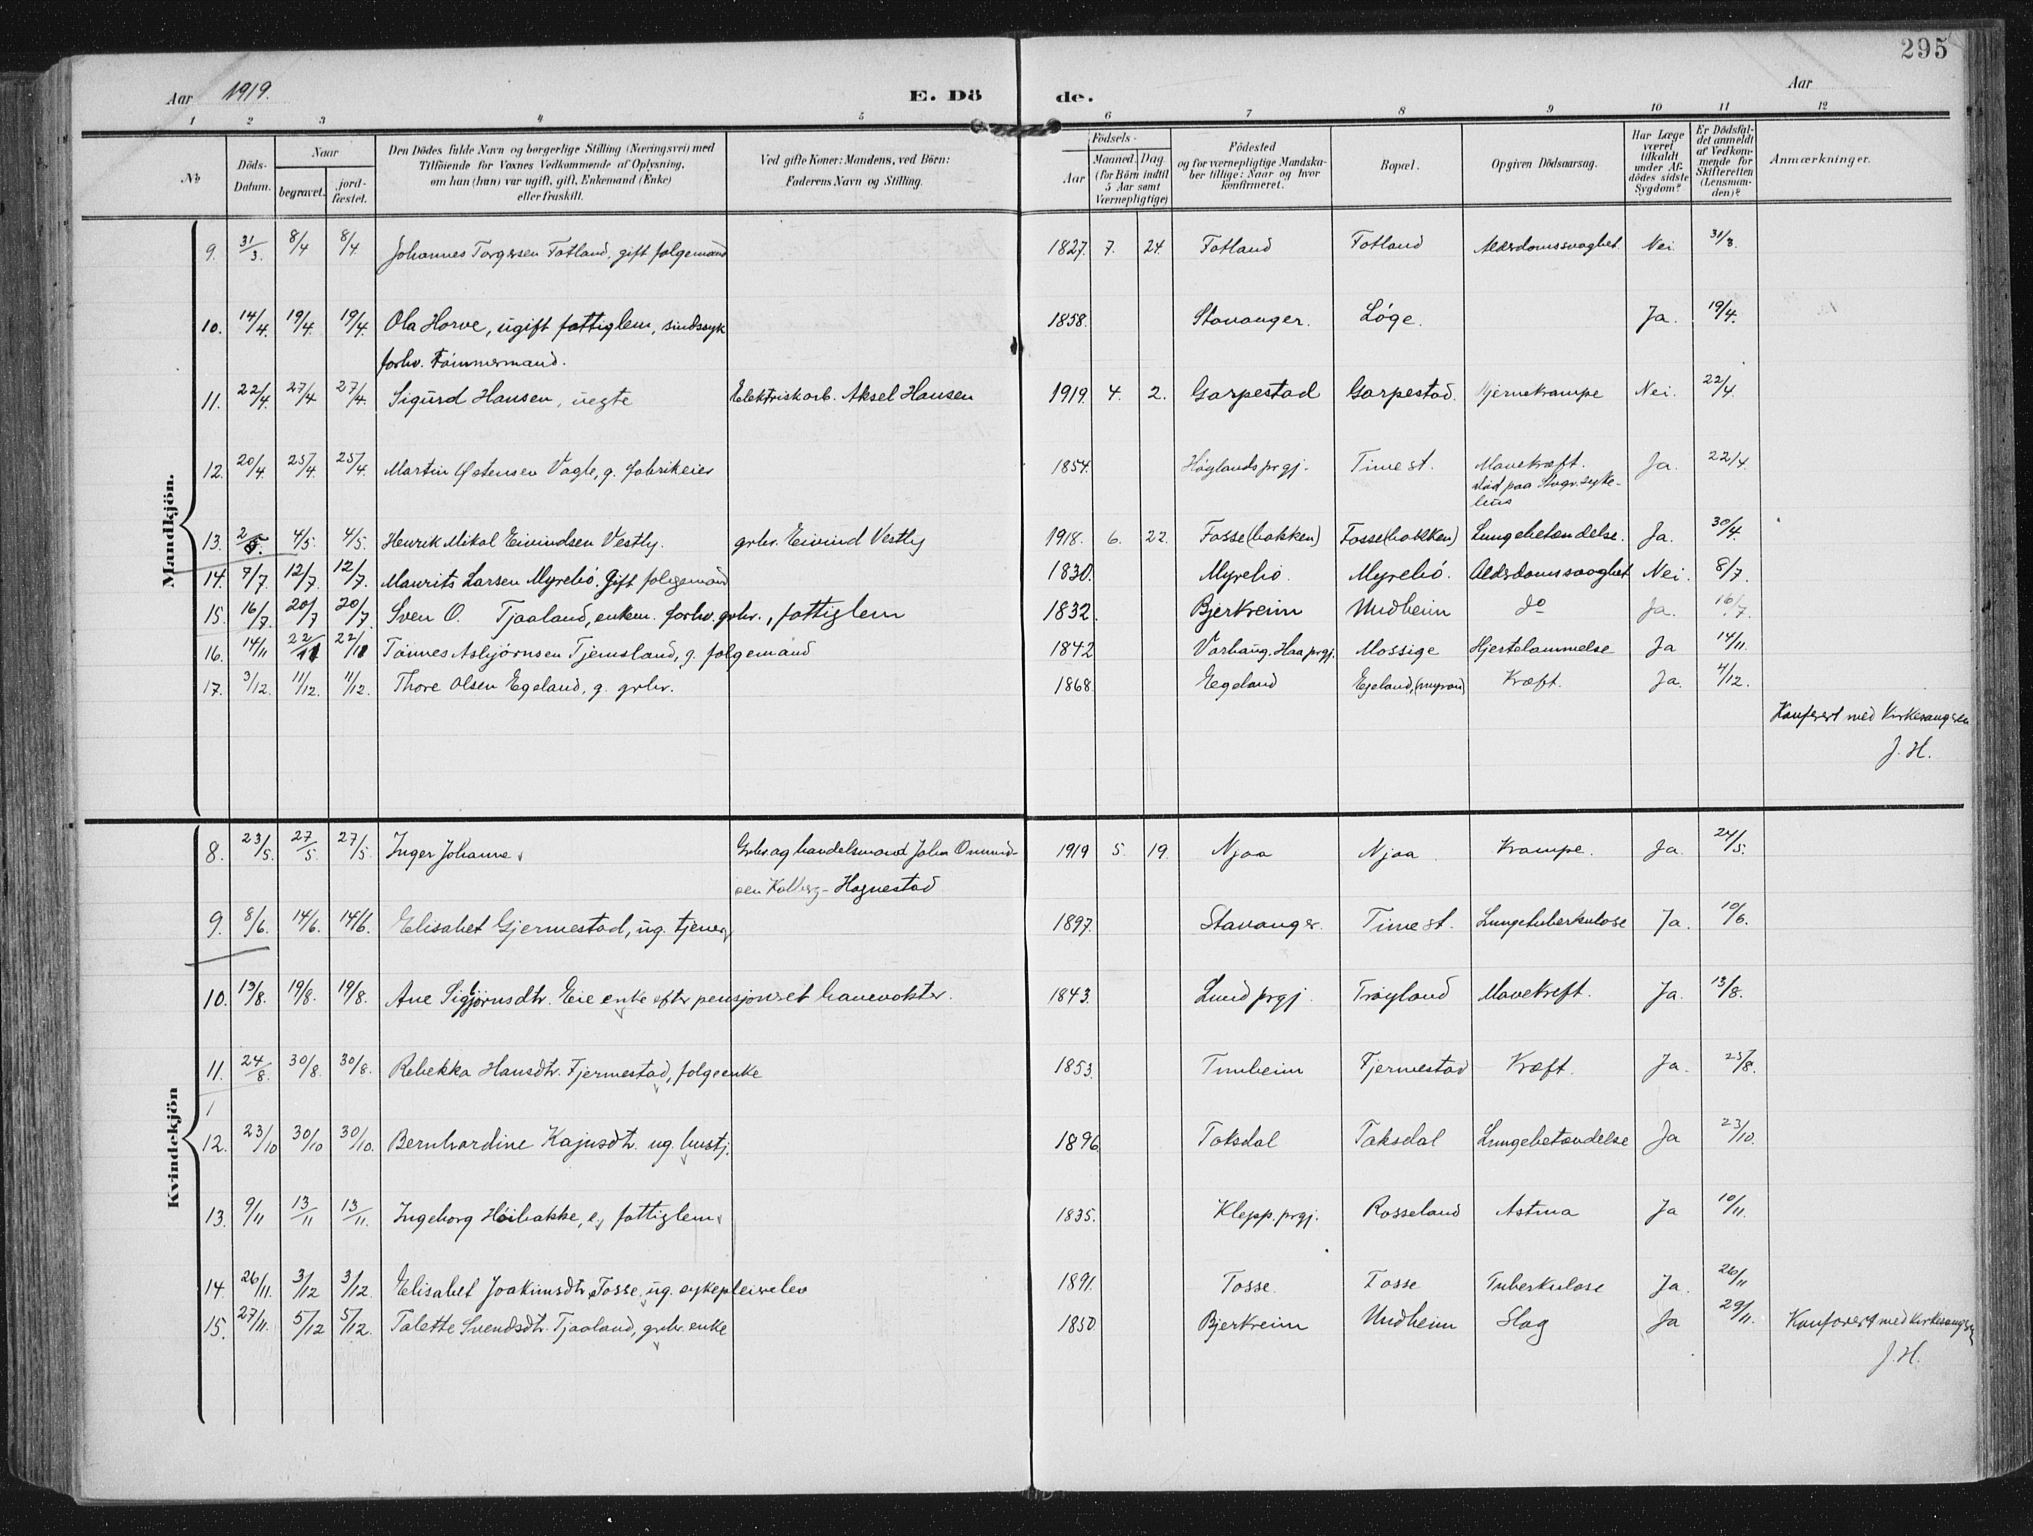 295
Aar 1919. E. Dö de. Aar
1 2 3 4 5 6 7 8 9 10 11 12
No
Döds-Datum.
Naar
begravet. jord-fæstet.
Den Dödes fulde Navn og borgerlige Stilling (Næringsvei) med
Tilföiende for Voxnes Vedkommende af Oplysning,
om han (hun) var ugift, gift, Enkemand (Enke)
eller fraskilt.
Ved gifte Koner: Mandens, ved Börn:
Faderens Navn og Stilling.
Födsels-
Aar Maaned. Dag
(for Börn indtil
5 Aar samt
Værnepligtige)
Födested
og for værnepligtige Mandska-
ber tillige: Naar og hvor
konfirmeret.
Bopæl.
Opgiven Dödsaarsag.
Har Læge
været
tilkaldt
under Af-
dödes sidste
Sygdom?
Er Dödsfal-
det anmeldt
af Vedkom-
mende for
Skifteretten
(Lensman-
den)?
Anmærkninger.
Mandkjön.
9. 31/3. 8/4 8/4. Johannes Torgersen Fotland, gift folgemand 1827. 7. 24. Fotland Fotland Alderdomssvaghet Nei. 31/3.
10. 14/4. 19/4 19/4. Ola Horve, ugift fattiglem, sindssyk 1858. Stavanger. Løge. Ja. 19/4.
forhv. Tömmermand.
11. 22/4. 27/4 27/4. Sigurd Hansen, uegte Elektriskarb. Aksel Hansen 1919. 4. 2. Garpestad Garpestad. Hjernekrampe Nei. 22/4.
12. 20/4. 25/4 25/4. Martin Østensen Vagle, g. fabrikeier 1854. Høglands prgj. Time st. Mavekræft. Ja. 22/4
død paa Stvgr. syke-
hus
13. 2/5. 4/5. 4/5. Henrik Mikal Eivindsen Vestly. grbr. Eivind Vestly 1918. 6. 22. Fosse (bakken) Fosse (bakken) Lungebetændelse. Ja. 30/4.
14. 7/7. 12/7. 12/7. Maurits Larsen Myrebø. Gift folgemand 1830. Myrebø. Myrebø. Alderdomssvaghet Nei. 8/7.
15. 16/7. 20/7 20/7. Sven O. Tjaaland, enkem. forhv. grbr., fattiglem 1832. Bjerkreim Undheim do Ja. 16/7.
16. 14/11 22/11 22/11 Tønnes Asbjørnsen Tjemsland, g. folgemand 1842 Varhaug. Haa prgj. Mossige Hjertelammelse Ja 14/11.
17. 3/12. 11/12. 11/12. Thore Olsen Egeland, g. grbr. 1868. Egeland Egeland, Kræft. Ja. 4/12.
Konferert med Kirkesangeren
J. H.
Kvindekjön
8. 23/5. 27/5 27/5. Inger Johanne. Grbr. og handelsmand John Omund- 1919 5. 19. Njaa Njaa. Krampe. Ja. 24/5.
sen Kalberg-Hognestad
9. 8/6. 14/6. 14/6. Elisabet Gjermestad, ug. tjener 1897. Stavanger. Time st. Lungetuberkulose Ja. 10/6.
10. 13/8. 19/8. 19/8. Ane Sigbjørnsdtr. Eie enke efter pensjonset banevokter. 1843. Lund prgj. Trøyland Mavekreft. Ja. 13/8.
11. 24/8. 30/8. 30/8. Rebekka Hansdtr. Fjermestad, folgeenke 1853. Tunheim Fjermestad Kræft. Ja. 25/8.
12. 23/10 30/10 30/10. Bernhardine Kajusdtr. ug. hustj. 1896. Taksdal Taksdal Lungebetændelse Ja 23/10.
13. 9/11 13/11 13/11. Ingeborg Høibakke, e, fattiglem. 1835. Klepp. prgj. Rosseland Astma Ja 10/11.
14. 26/11. 3/12 3/12. Elisabet Joakimsdtr. Fosse. ug. sykepleierelev 1891. Fosse. Fosse Tuberkulose Ja. 26/11
15. 27/11. 5/12 5/12. Talette Svendsdtr. Tjaaland, grbr. enke 1850 Bjerkreim Undheim Slag Ja 29/11. Konferert med Kirkesanger
J. H.